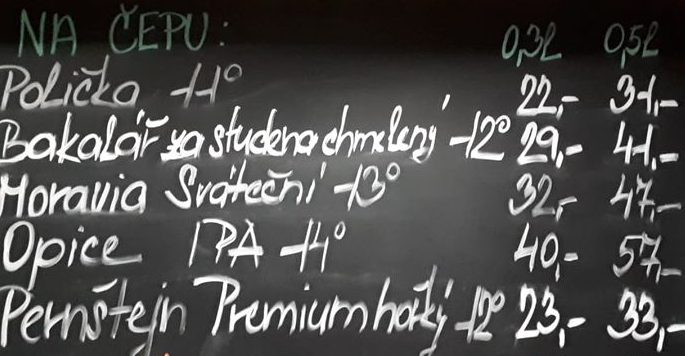 NA ČEPU: 0,3l 0,5l
Polička 11° 22,- 31,-
Bakalář za studena chmelený 12° 29,- 41,-
Moravia Sváteční 13° 32,- 47,-
Opice IPA 14° 40,- 57,-
Pernštejn Premium hořký 12° 23,- 33,-